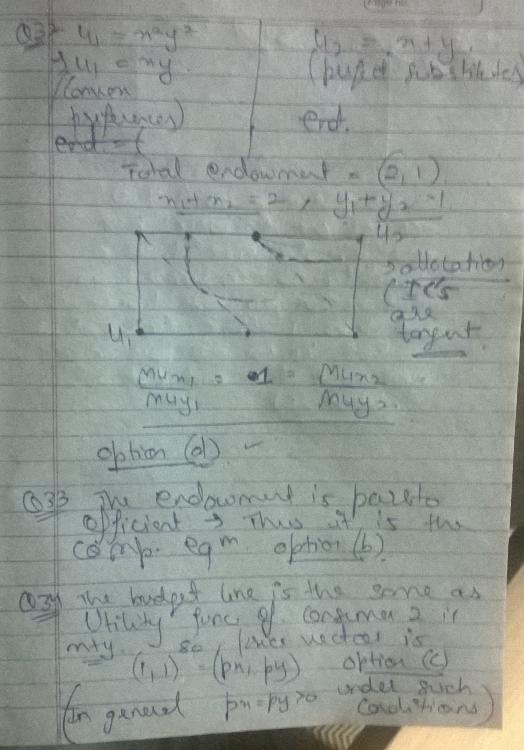 Q32 u₁ = x²y²
u₂ = x+y.
u₁ = xy.
(perfect substitutes)
(Convex
preferences)
End.
End = (
Total endowment = (2,1)
x₁+x₂ = 2, y₁+y₂ = 1
u₂
allocation
(IC's
are
tangent
u₁
MUx₁/MUy₁ = 1 = MUx₂/MUy₂.
option (d)
Q33 The endowment is pareto
efficient → Thus it is the
comp. eqm. option (b)
Q34 The budget line is the same as
Utility func of consumer 2 ie
x+y. so price vector is
(1,1) = (px, py) option (c)
(In general px=py>0 under such
conditions)